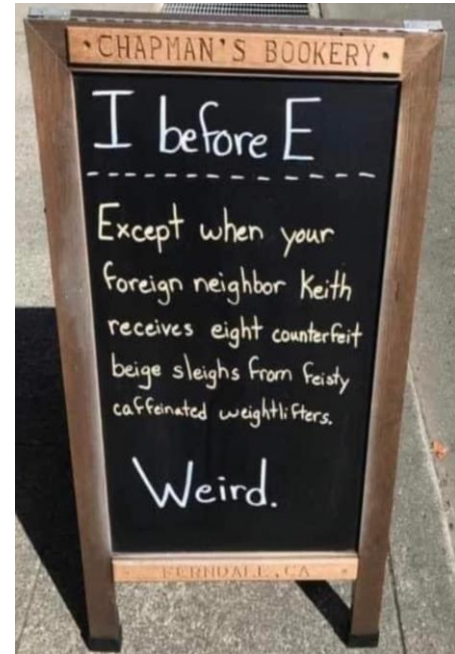 • CHAPMAN'S BOOKERY •
I before E
Except when your
foreign neighbor Keith
receives eight counterfeit
beige sleighs from feisty
caffeinated weightlifters.
Weird.
FERNDALE, CA